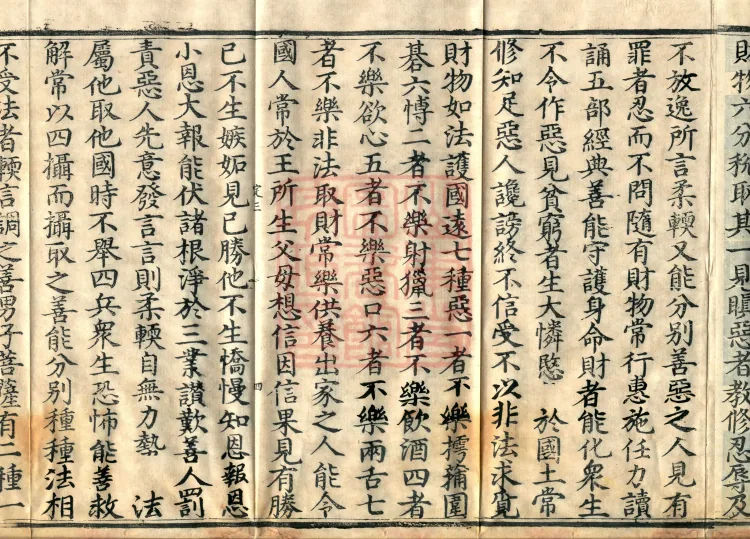 財物六分稅取其一見瞋惡者教修忍辱及
不放逸所言柔輭又能分別善惡之人見有
罪者忍而不問隨有財物常行惠施任力讀
誦五部經典善能守護身命財者能化衆生
不令作惡見貧窮者生大憐愍 於國土常
修知足惡人讒謗終不信受不以非法求覓
財物如法護國遠七種惡一者不樂摴蒱圍
碁六愽二者不樂射獵三者不樂飲酒四者
不樂欲心五者不樂惡口六者不樂兩舌七
者不樂非法取財常樂供養出家之人能令
國人常於王所生父母想信因信果見有勝
已不生嫉妬見已勝他不生憍慢知恩報恩
小恩大報能伏諸根淨於三業讃歎善人罰
責惡人先意發言言則柔輭自無力勢 法
屬他取他國時不舉四兵衆生恐怖能善救
解常以四攝而攝取之善能分別種種法相
不受法者輭言調之善男子菩薩有二種一